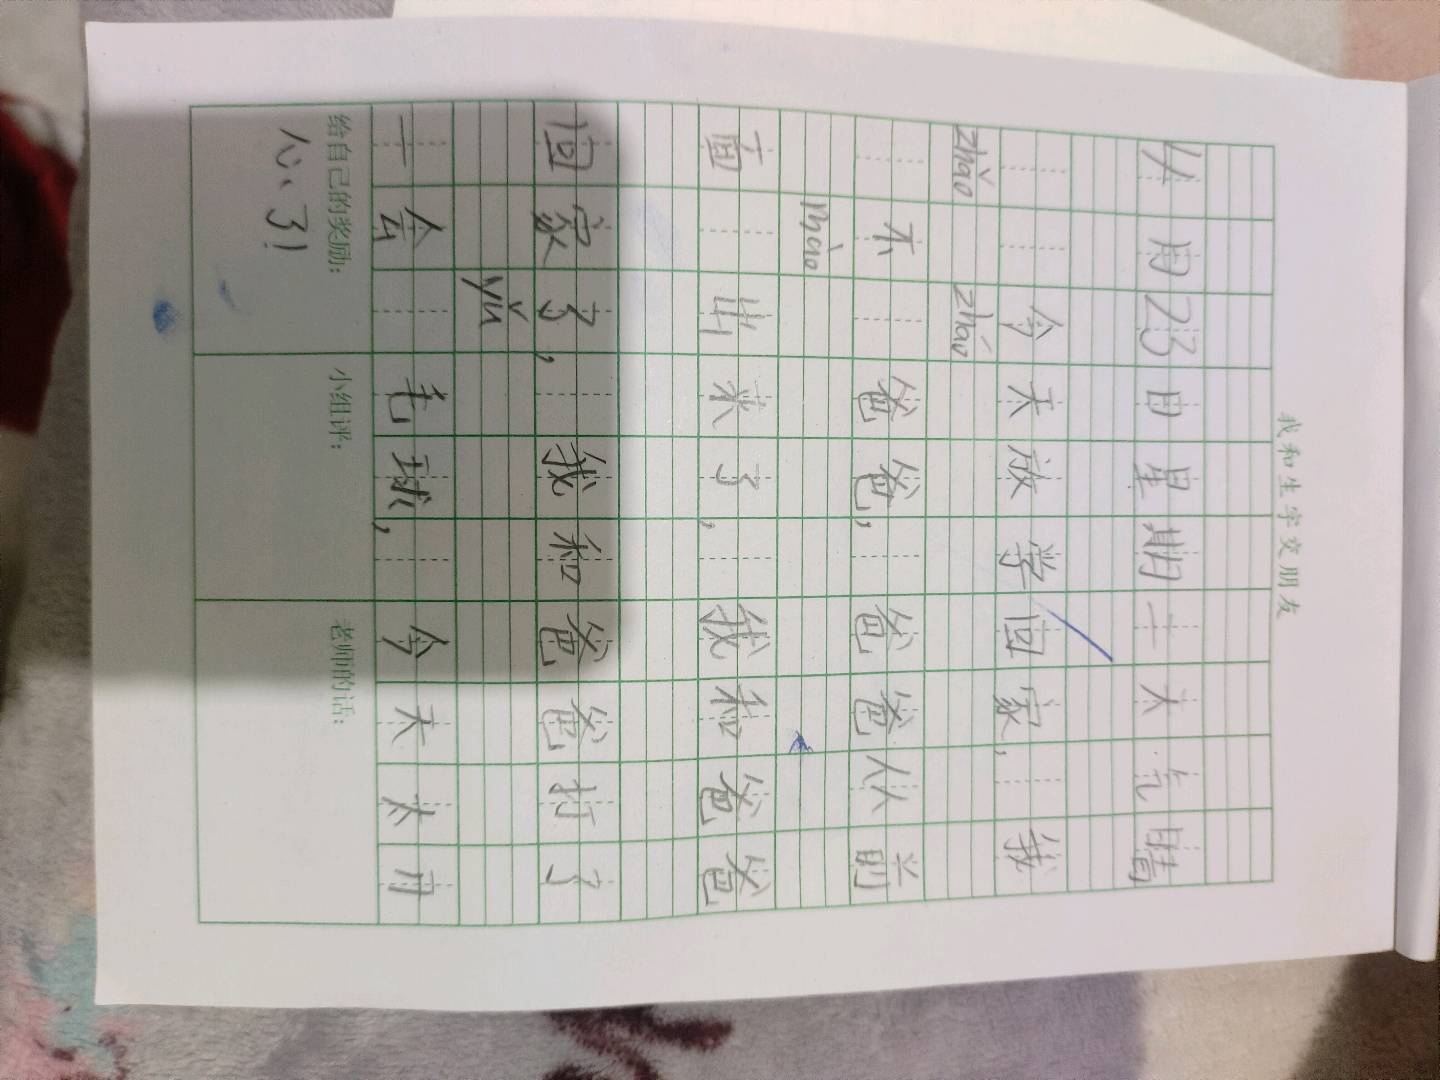 我和生字交朋友
4月23日星期二天气晴
今天放学回家,我
zhǎo zháo
不爸爸,爸爸从前
mào
面出来了,我和爸爸
回家了,我和爸爸打了
yǔ
一会毛球,今天太开
给自己的奖励: 小组评: 老师的话:
心了!